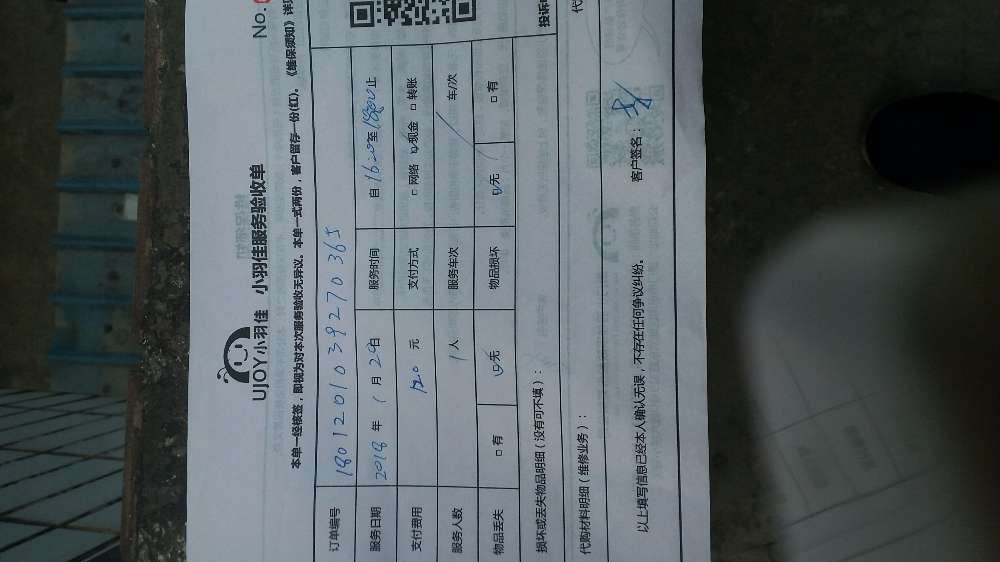 No.
UJOY小羽佳 小羽佳服务验收单
本单一经核签，即视为对本次服务验收无异议。本单一式两份，客户留存一份(红)。《维保须知》详
订单编号 1801201039270365
服务日期 2018 年 1 月 29 日 服务时间 自 1620 至 1880 止
支付费用 120 元 支付方式 □ 网络 □ 现金 □ 转账
服务人数 1 人 服务车次 / 车/次
物品丢失 □ 有 □ 无 物品损坏 □ 无 □ 有
损坏或丢失物品明细（没有可不填）：
投诉
代购材料明细（维修业务）：
代
以上填写信息已经本人确认无误，不存在任何争议纠纷。
客户签名：